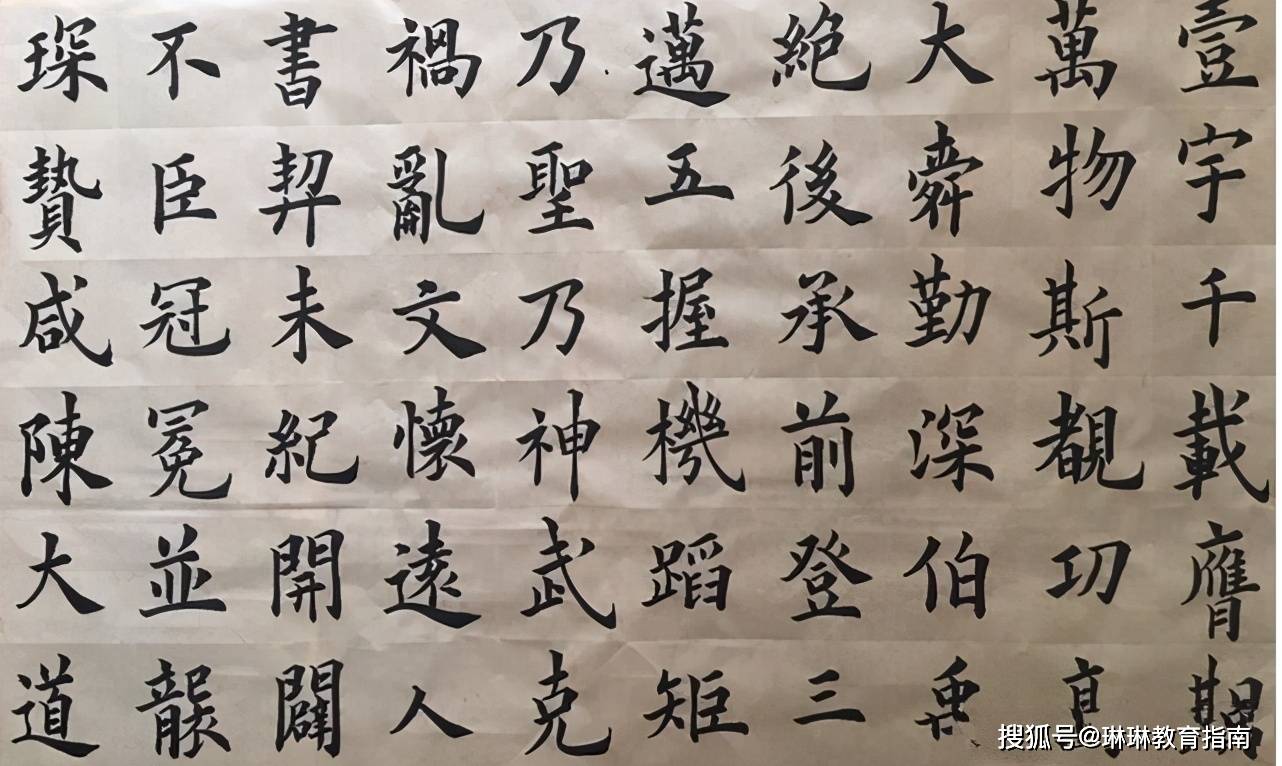 壹宇千載膺
萬物斯覩功
大舜勤深伯禹
絶後承前登三
邁五握機蹈矩
乃聖乃神武克
禍亂文懷遠人
書契未紀開闢
不臣冠冕並襲
琛贄咸陳大道
搜狐号@琳琳教育指南